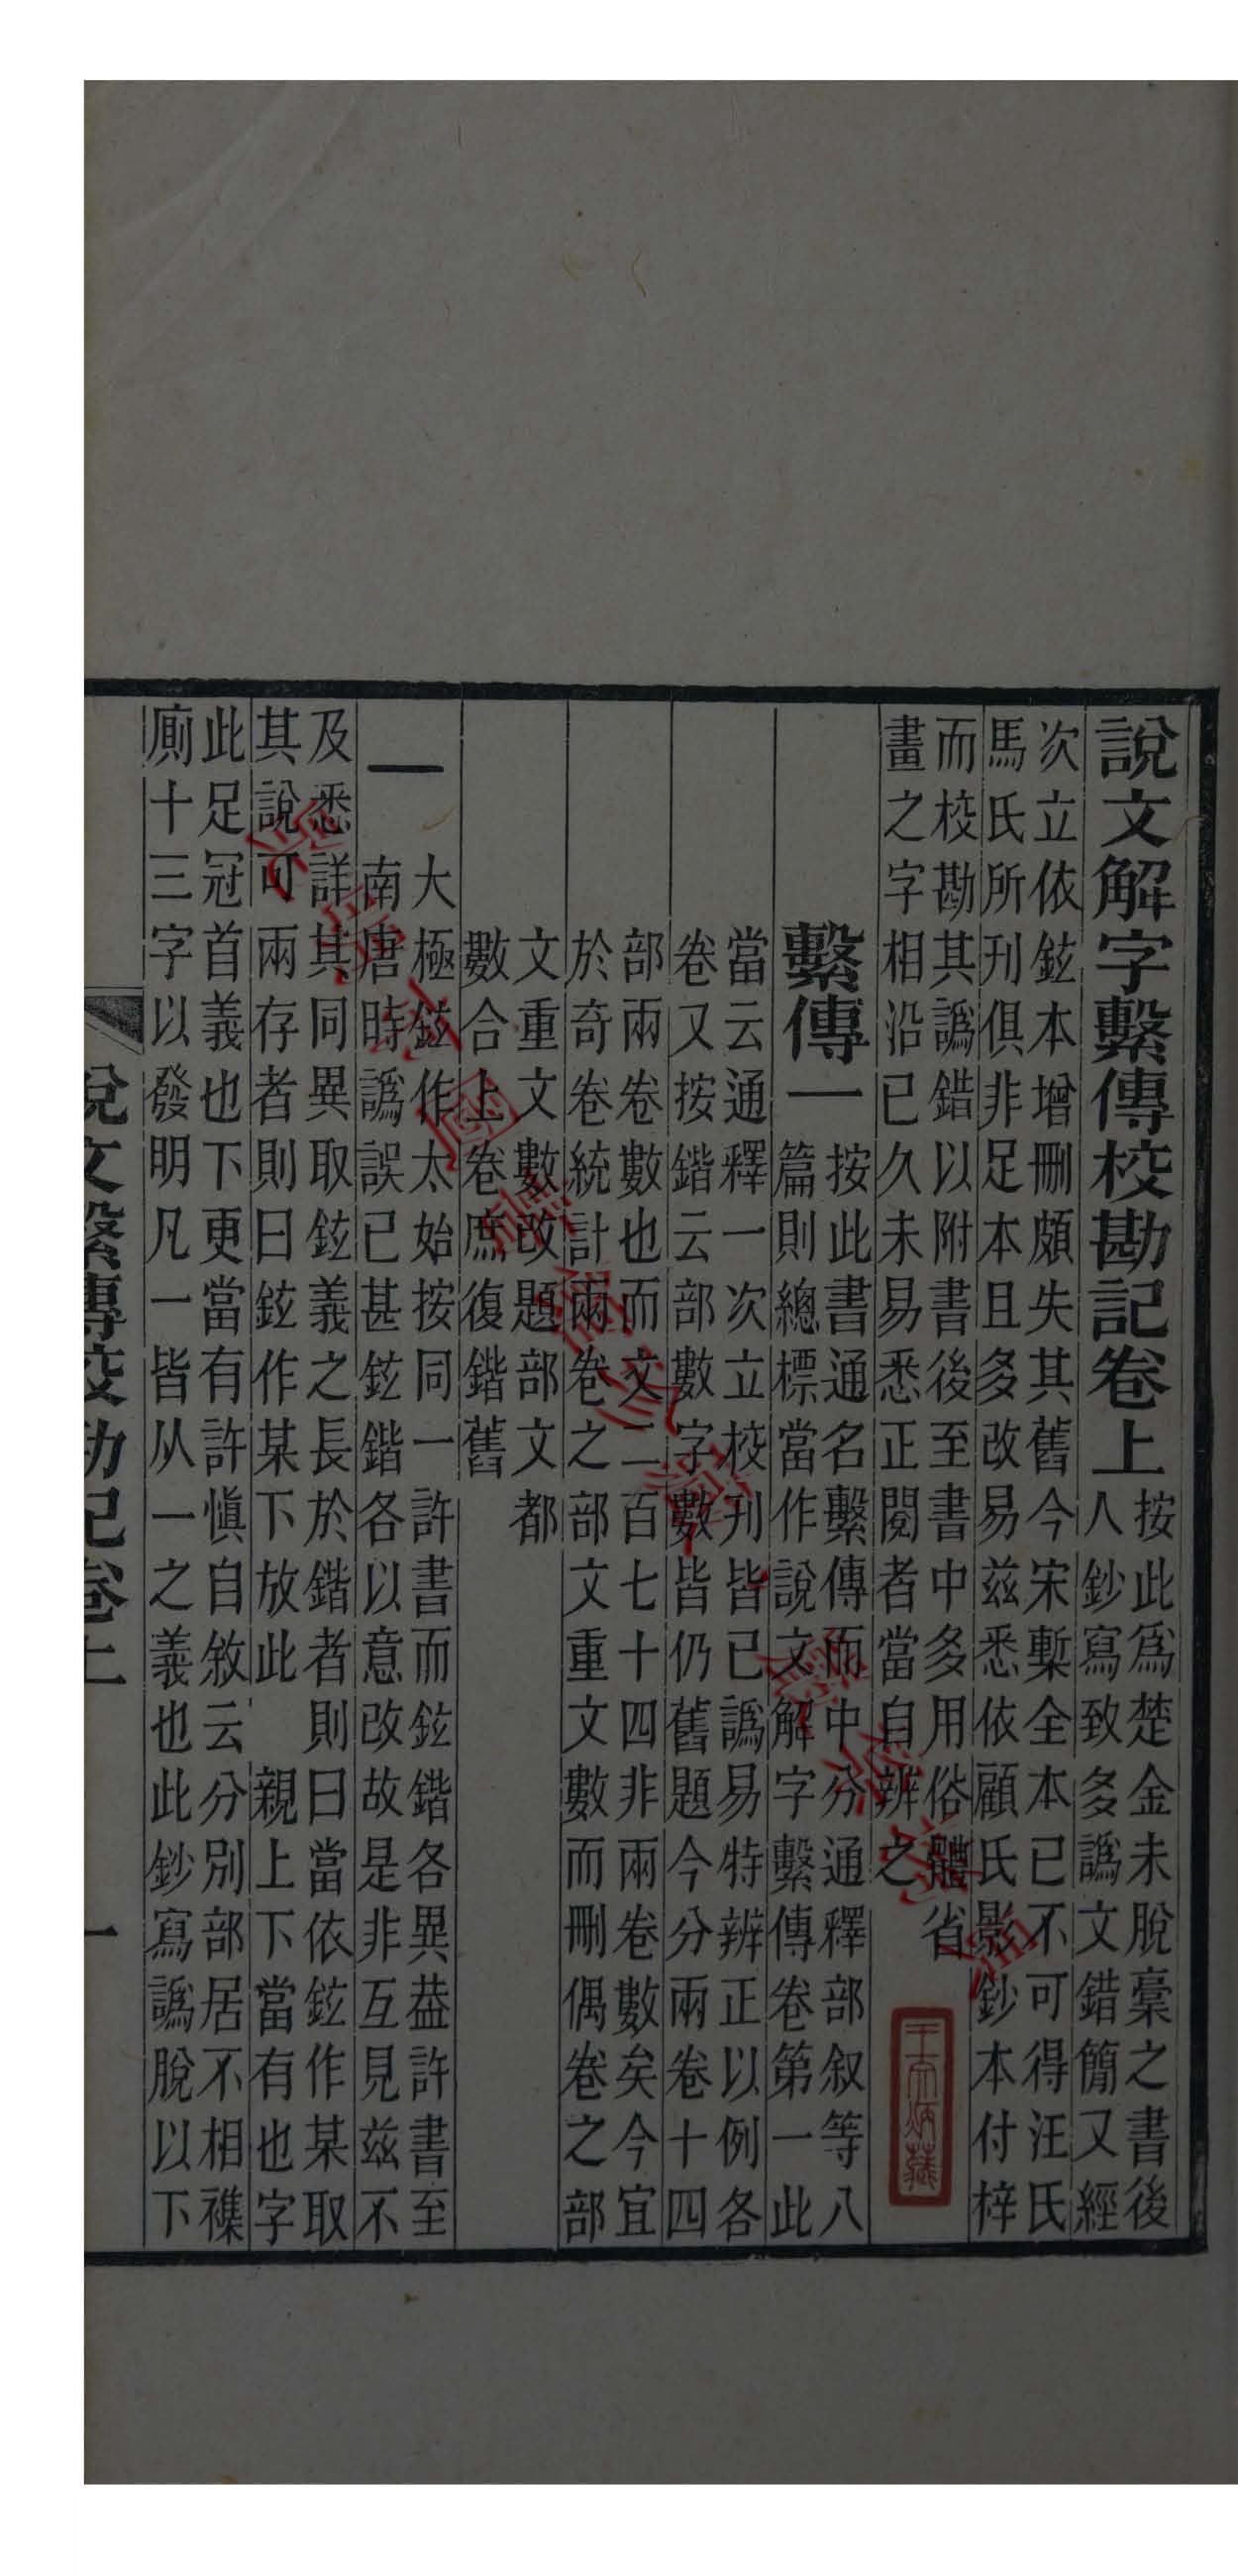 說文解字繫傳校勘記卷上
按此爲楚金未脫稾之書後
人鈔寫致多譌文錯簡又經
次立依鉉本增刪頗失其舊今宋槧全本已不可得汪氏
馬氏所刊俱非足本且多改易茲悉依顧氏影鈔本付梓
而校勘其譌錯以附書後至書中多用俗體省
畫之字相沿已久未易悉正閱者當自辨之
繫傳一
按此書通名繫傳而中分通釋部叙等八
篇則總標當作說文解字繫傳卷第一此
當云通釋一次立校刋皆已譌易特辨正以例各
卷又按鍇云部數字數皆仍舊題今分兩卷十四
部兩卷卷數也而文二百七十四非兩卷數矣今宜
於奇卷統計兩卷之部文重文數而刪偶卷之部
文重文文數改題部文都
數合上卷庶復鍇舊
一
大極鉉作太始按同一許書而鉉鍇各異葢許書至
南唐時譌誤已甚鉉鍇各以意改故是非互見茲不
及悉詳其同異取鉉義之長於鍇者則曰當依鉉作某取
其說可兩存者則曰鉉作某下放此 親上下當有也字
此足冠首義也下更當有許愼自敘云分別部居不相襍
廁十三字以發明凡一皆从一之義也此鈔寫譌脫以下
說文繫傳校勘記卷上
一